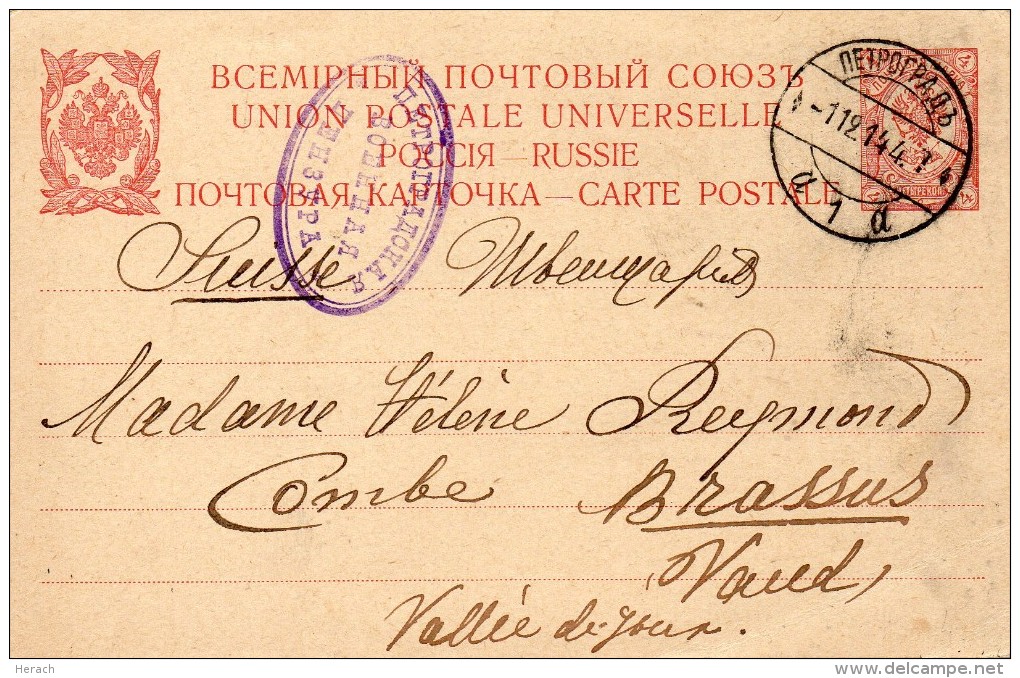 ВСЕМІРНЫЙ ПОЧТОВЫЙ СОЮЗЪ
UNION POSTALE UNIVERSELLE
РОССІЯ—RUSSIE
ПОЧТОВАЯ КАРТОЧКА—CARTE POSTALE
ПЕТРОГРАДСКАЯ
ВОЕННАЯ
ЦЕНЗУРА
ПЕТРОГРАДЪ
-1 12.14 4.
1
Suisse Швейцарія
Madame Hélène Reymond
Combe Brassus
Vaud
Vallée de Joux.
Herach
delcampe.net